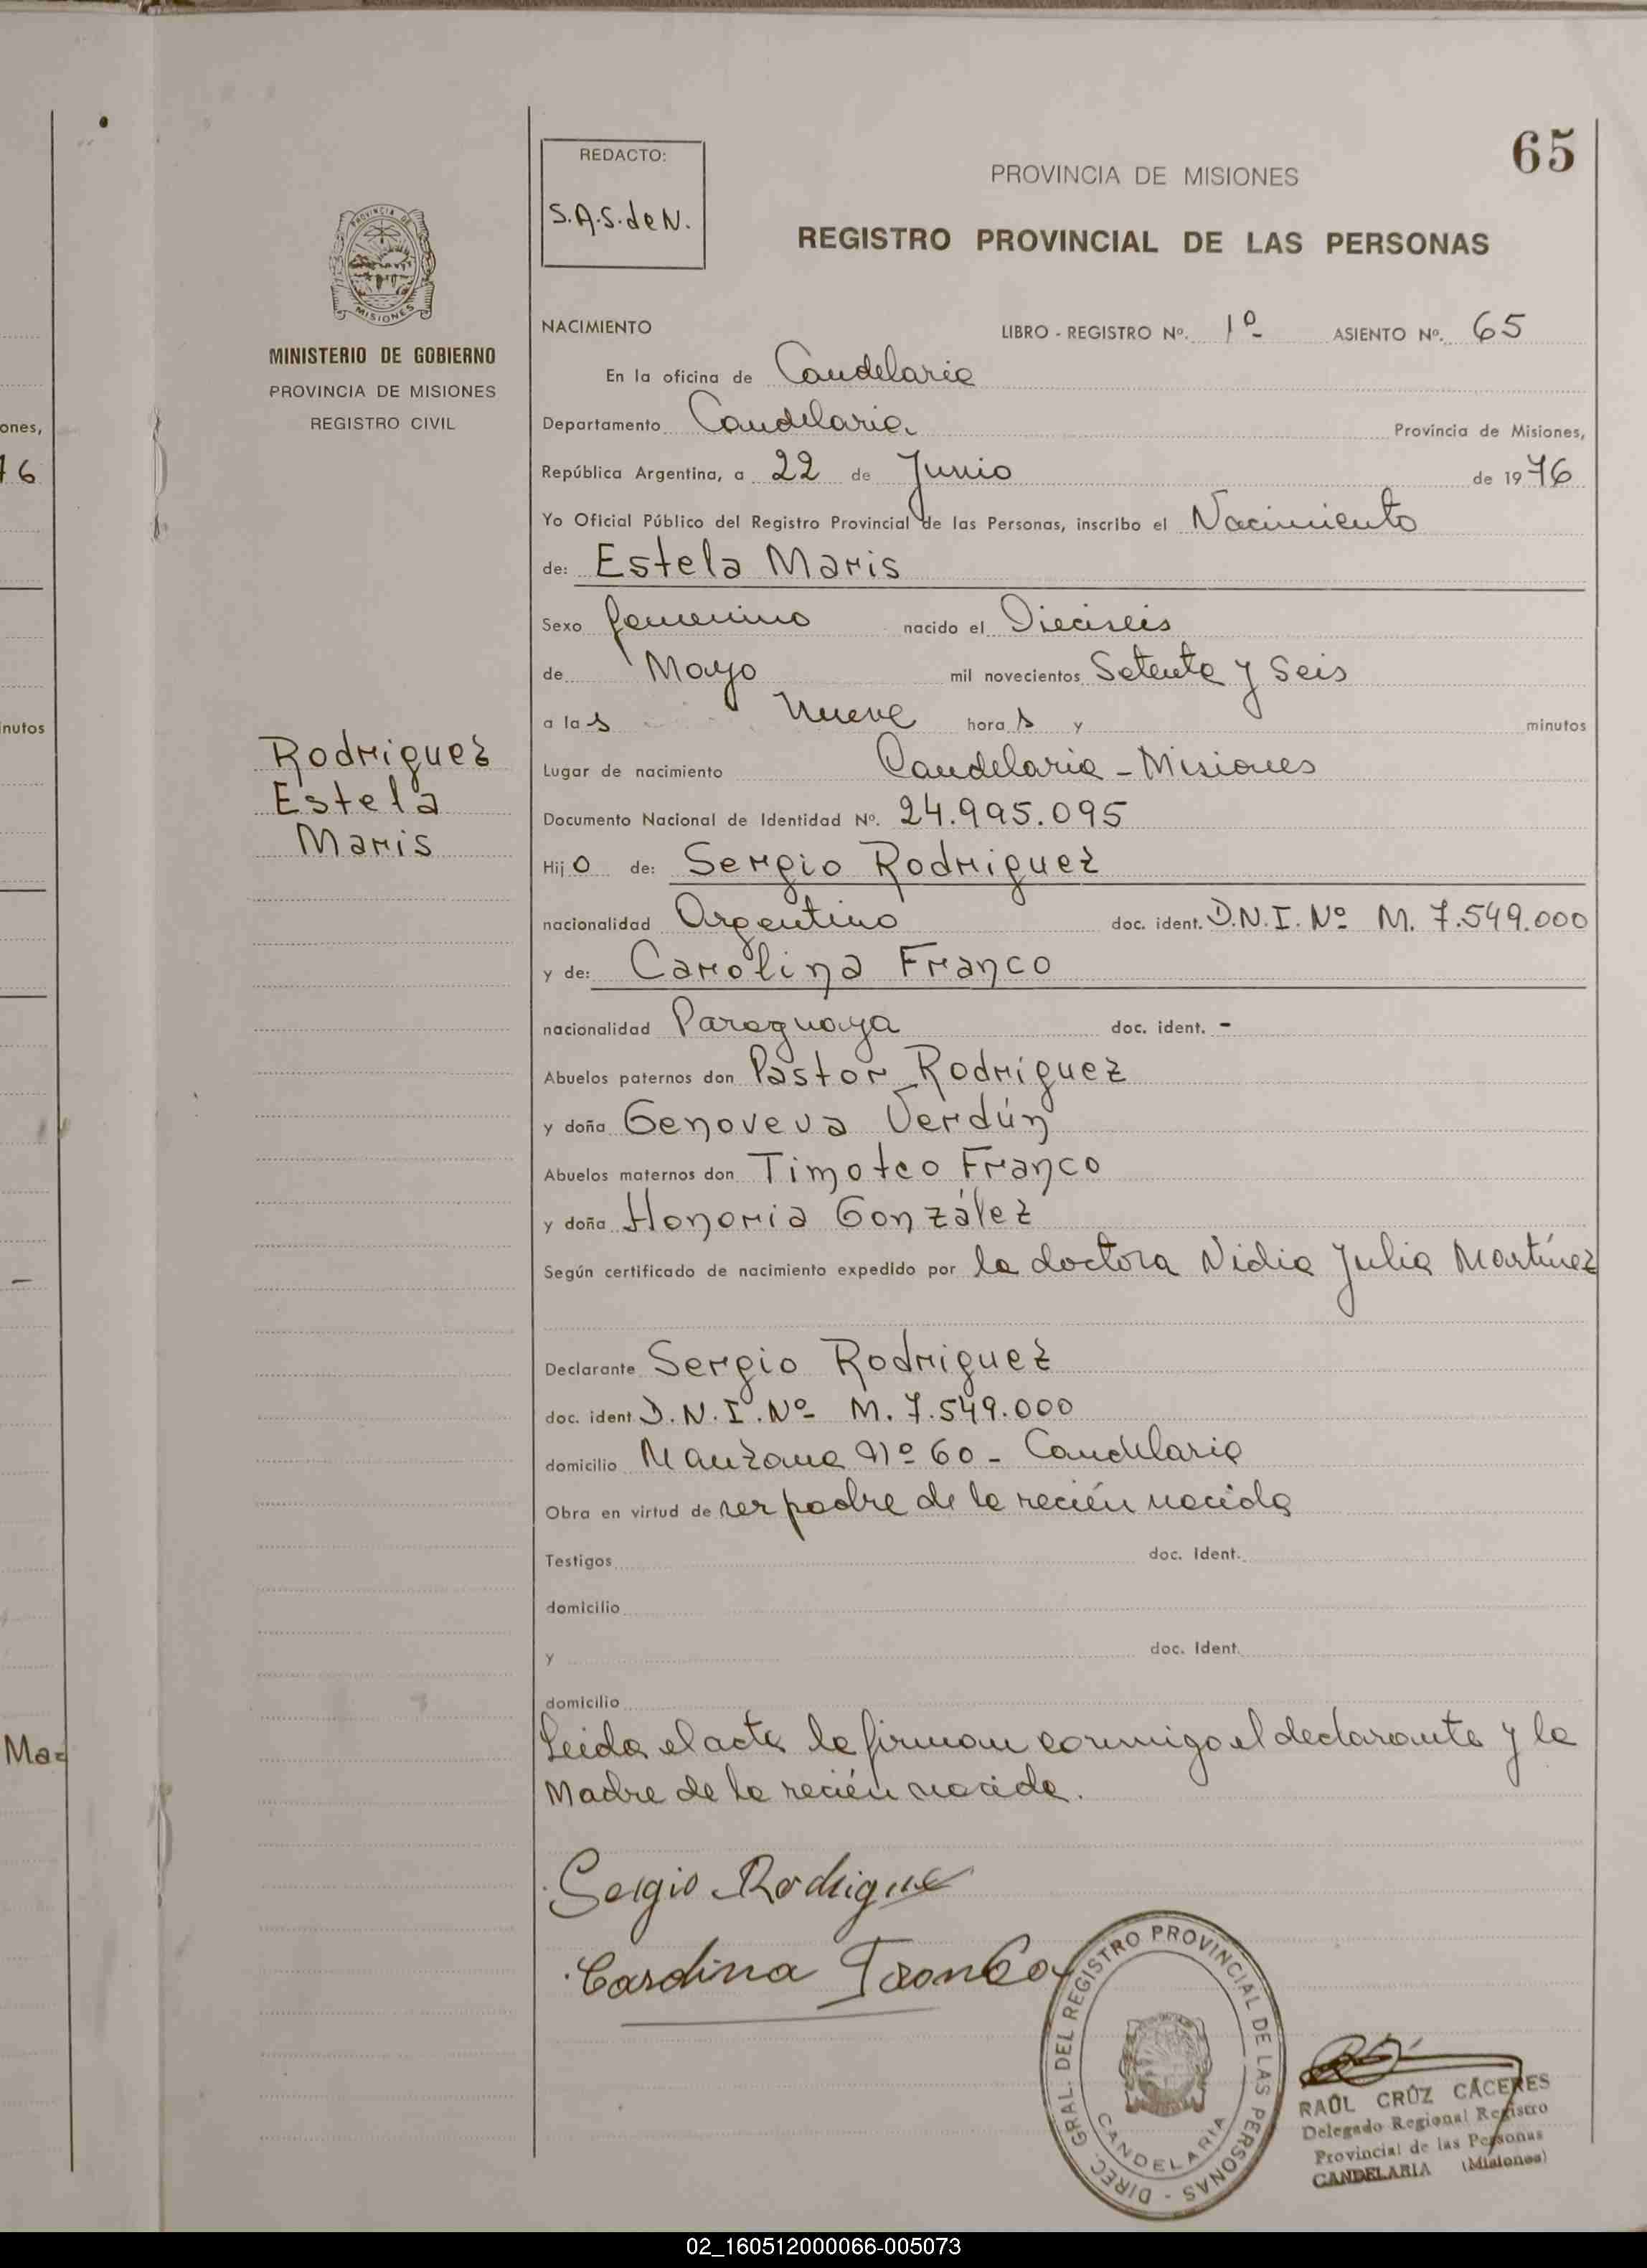 65
REDACTO:
S.A.S. de N.
PROVINCIA DE MISIONES
REGISTRO PROVINCIAL DE LAS PERSONAS
PROVINCIA DE
MISIONES
MINISTERIO DE GOBIERNO
PROVINCIA DE MISIONES
REGISTRO CIVIL
ones,
76
nutos
Ma
Rodriguez
Estela
Maris
NACIMIENTO LIBRO - REGISTRO Nº. 1º ASIENTO Nº. 65
En la oficina de Candelaria
Departamento Candelaria Provincia de Misiones,
República Argentina, a 22 de Junio de 1976
Yo Oficial Público del Registro Provincial de las Personas, inscribo el Nacimiento
de: Estela Maris
Sexo femenino nacido el Dieciseis
de Mayo mil novecientos Setenta y Seis
a las Nueve horas y minutos
Lugar de nacimiento Candelaria - Misiones
Documento Nacional de Identidad Nº. 24.995.095
Hijo de: Sergio Rodriguez
nacionalidad Argentino doc. ident. D.N.I. Nº M. 7.549.000
y de: Carolina Franco
nacionalidad Paraguaya doc. ident. -
Abuelos paternos don Pastor Rodriguez
y doña Genoveva Verdún
Abuelos maternos don Timoteo Franco
y doña Honoria González
Según certificado de nacimiento expedido por la doctora Nidia Julia Martínez
Declarante Sergio Rodriguez
doc. ident. D.N.I. Nº M. 7.549.000
domicilio Manzana Nº 60 - Candelaria
Obra en virtud de ser padre de la recién nacida
Testigos doc. Ident.
domicilio
y doc. Ident.
domicilio
Leida el acta la firman conmigo el declarante y la
Madre de la recién nacida.
Sergio Rodriguez
Carolina Franco
DIREC. GRAL. DEL REGISTRO PROVINCIAL DE LAS PERSONAS -
CANDELARIA
RAÚL CRÚZ CÁCERES
Delegado Regional Registro
Provincial de las Personas
CANDELARIA (Misiones)
02_160512000066-005073